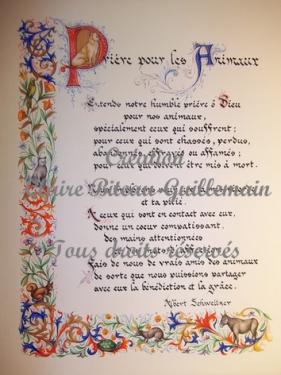 Prière pour les Animaux
Entends notre humble prière ô Dieu
pour nos animaux,
spécialement ceux qui souffrent;
pour ceux qui sont chassés, perdus,
abandonnés, effrayés ou affamés;
pour ceux qui doivent être mis à mort.
Création
Claire Pitouis Guillemain
et ta pitié.
A ceux qui sont en contact avec eux,
donne un coeur compatissant,
des mains attentionnées
Tous droits réservés
Fais de nous de vrais amis des animaux
de sorte que nous puissions partager
avec eux la bénédiction et la grâce.
Albert Schweitzer